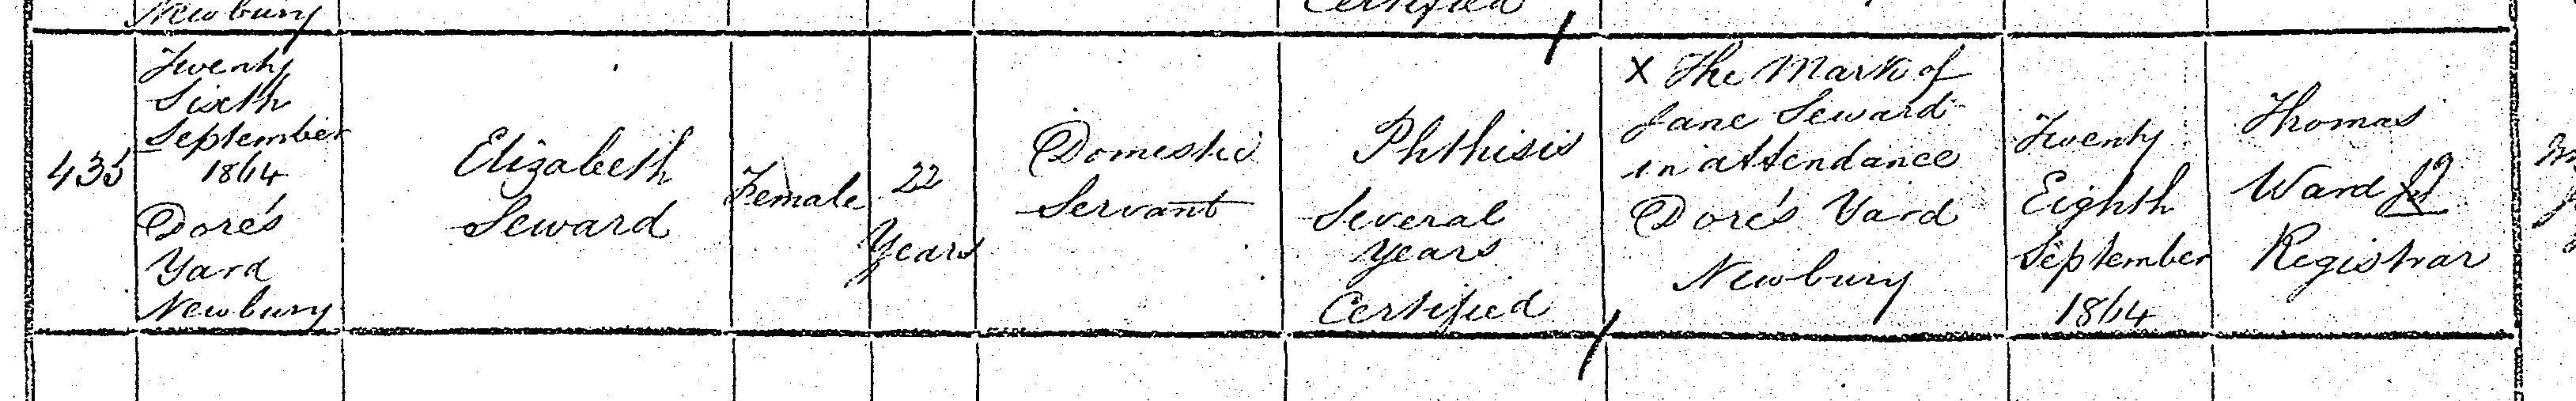 Newbury
Certified
435
Twenty
Sixth
September
1864
Dore's
Yard
Newbury
Elizabeth
Seward
Female
22
Years
Domestic
Servant
Phthisis
Several
Years
Certified
X The Mark of
Jane Seward
in attendance
Dore's Yard
Newbury
Twenty
Eighth
September
1864
Thomas
Ward
Registrar